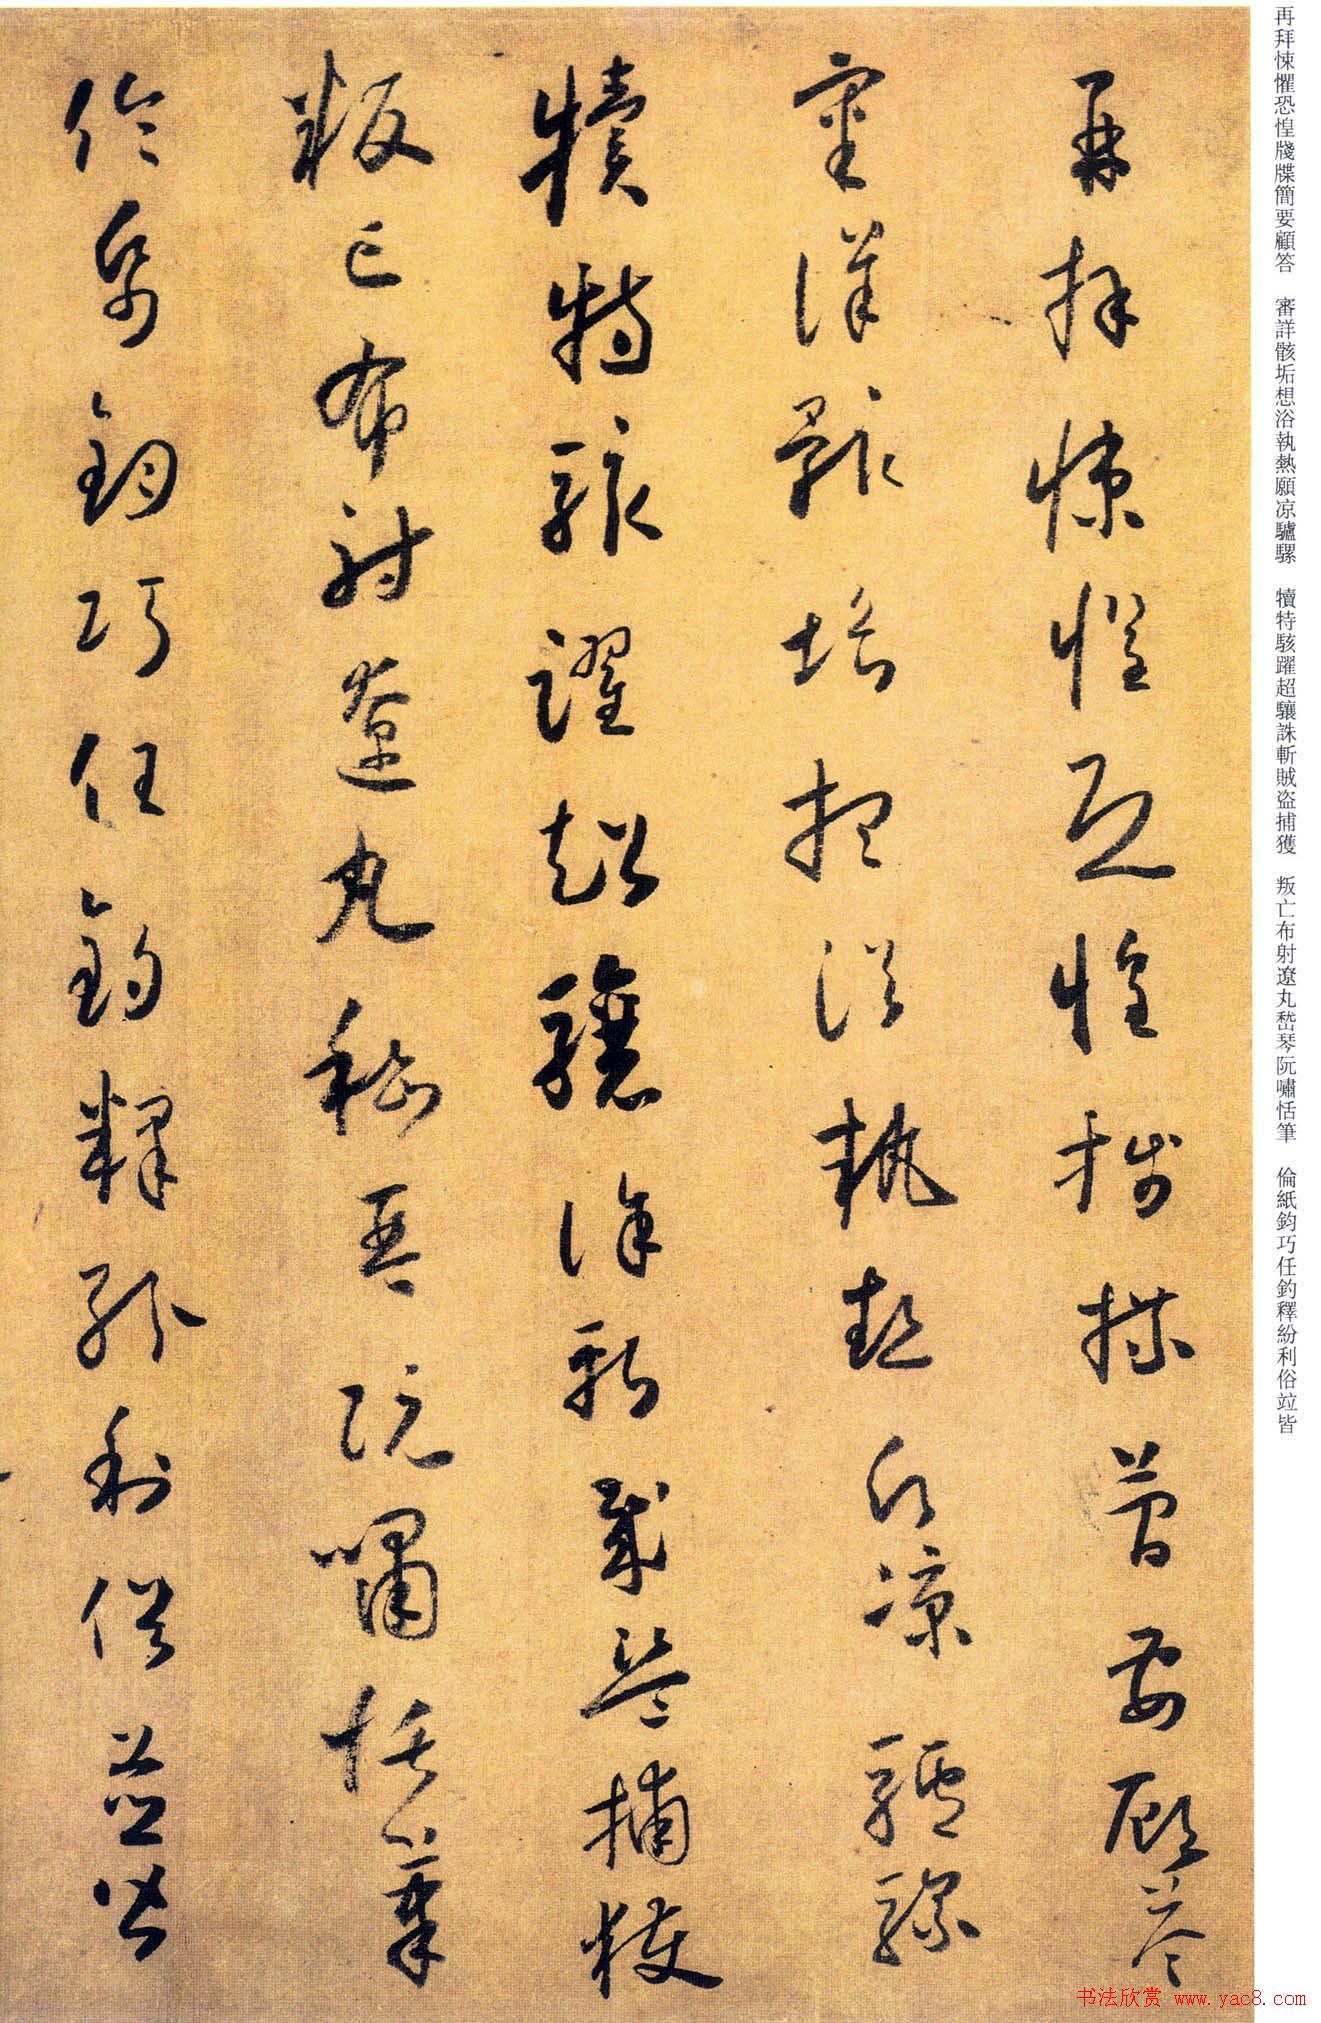 再拜悚懼恐惶牋牒簡要顧答
審詳骸垢想浴執熱願凉驢騾
犢特駭躍超驤誅斬賊盗捕獲
叛亡布射遼丸嵇琴阮嘯恬筆
倫紙鈞巧任釣釋紛利俗竝皆
再拜悚懼恐惶牋牒簡要顧答 審詳骸垢想浴執熱願凉驢騾 犢特駭躍超驤誅斬賊盗捕獲 叛亡布射遼丸嵇琴阮嘯恬筆 倫紙鈞巧任釣釋紛利俗竝皆
书法欣赏 www.yac8.com